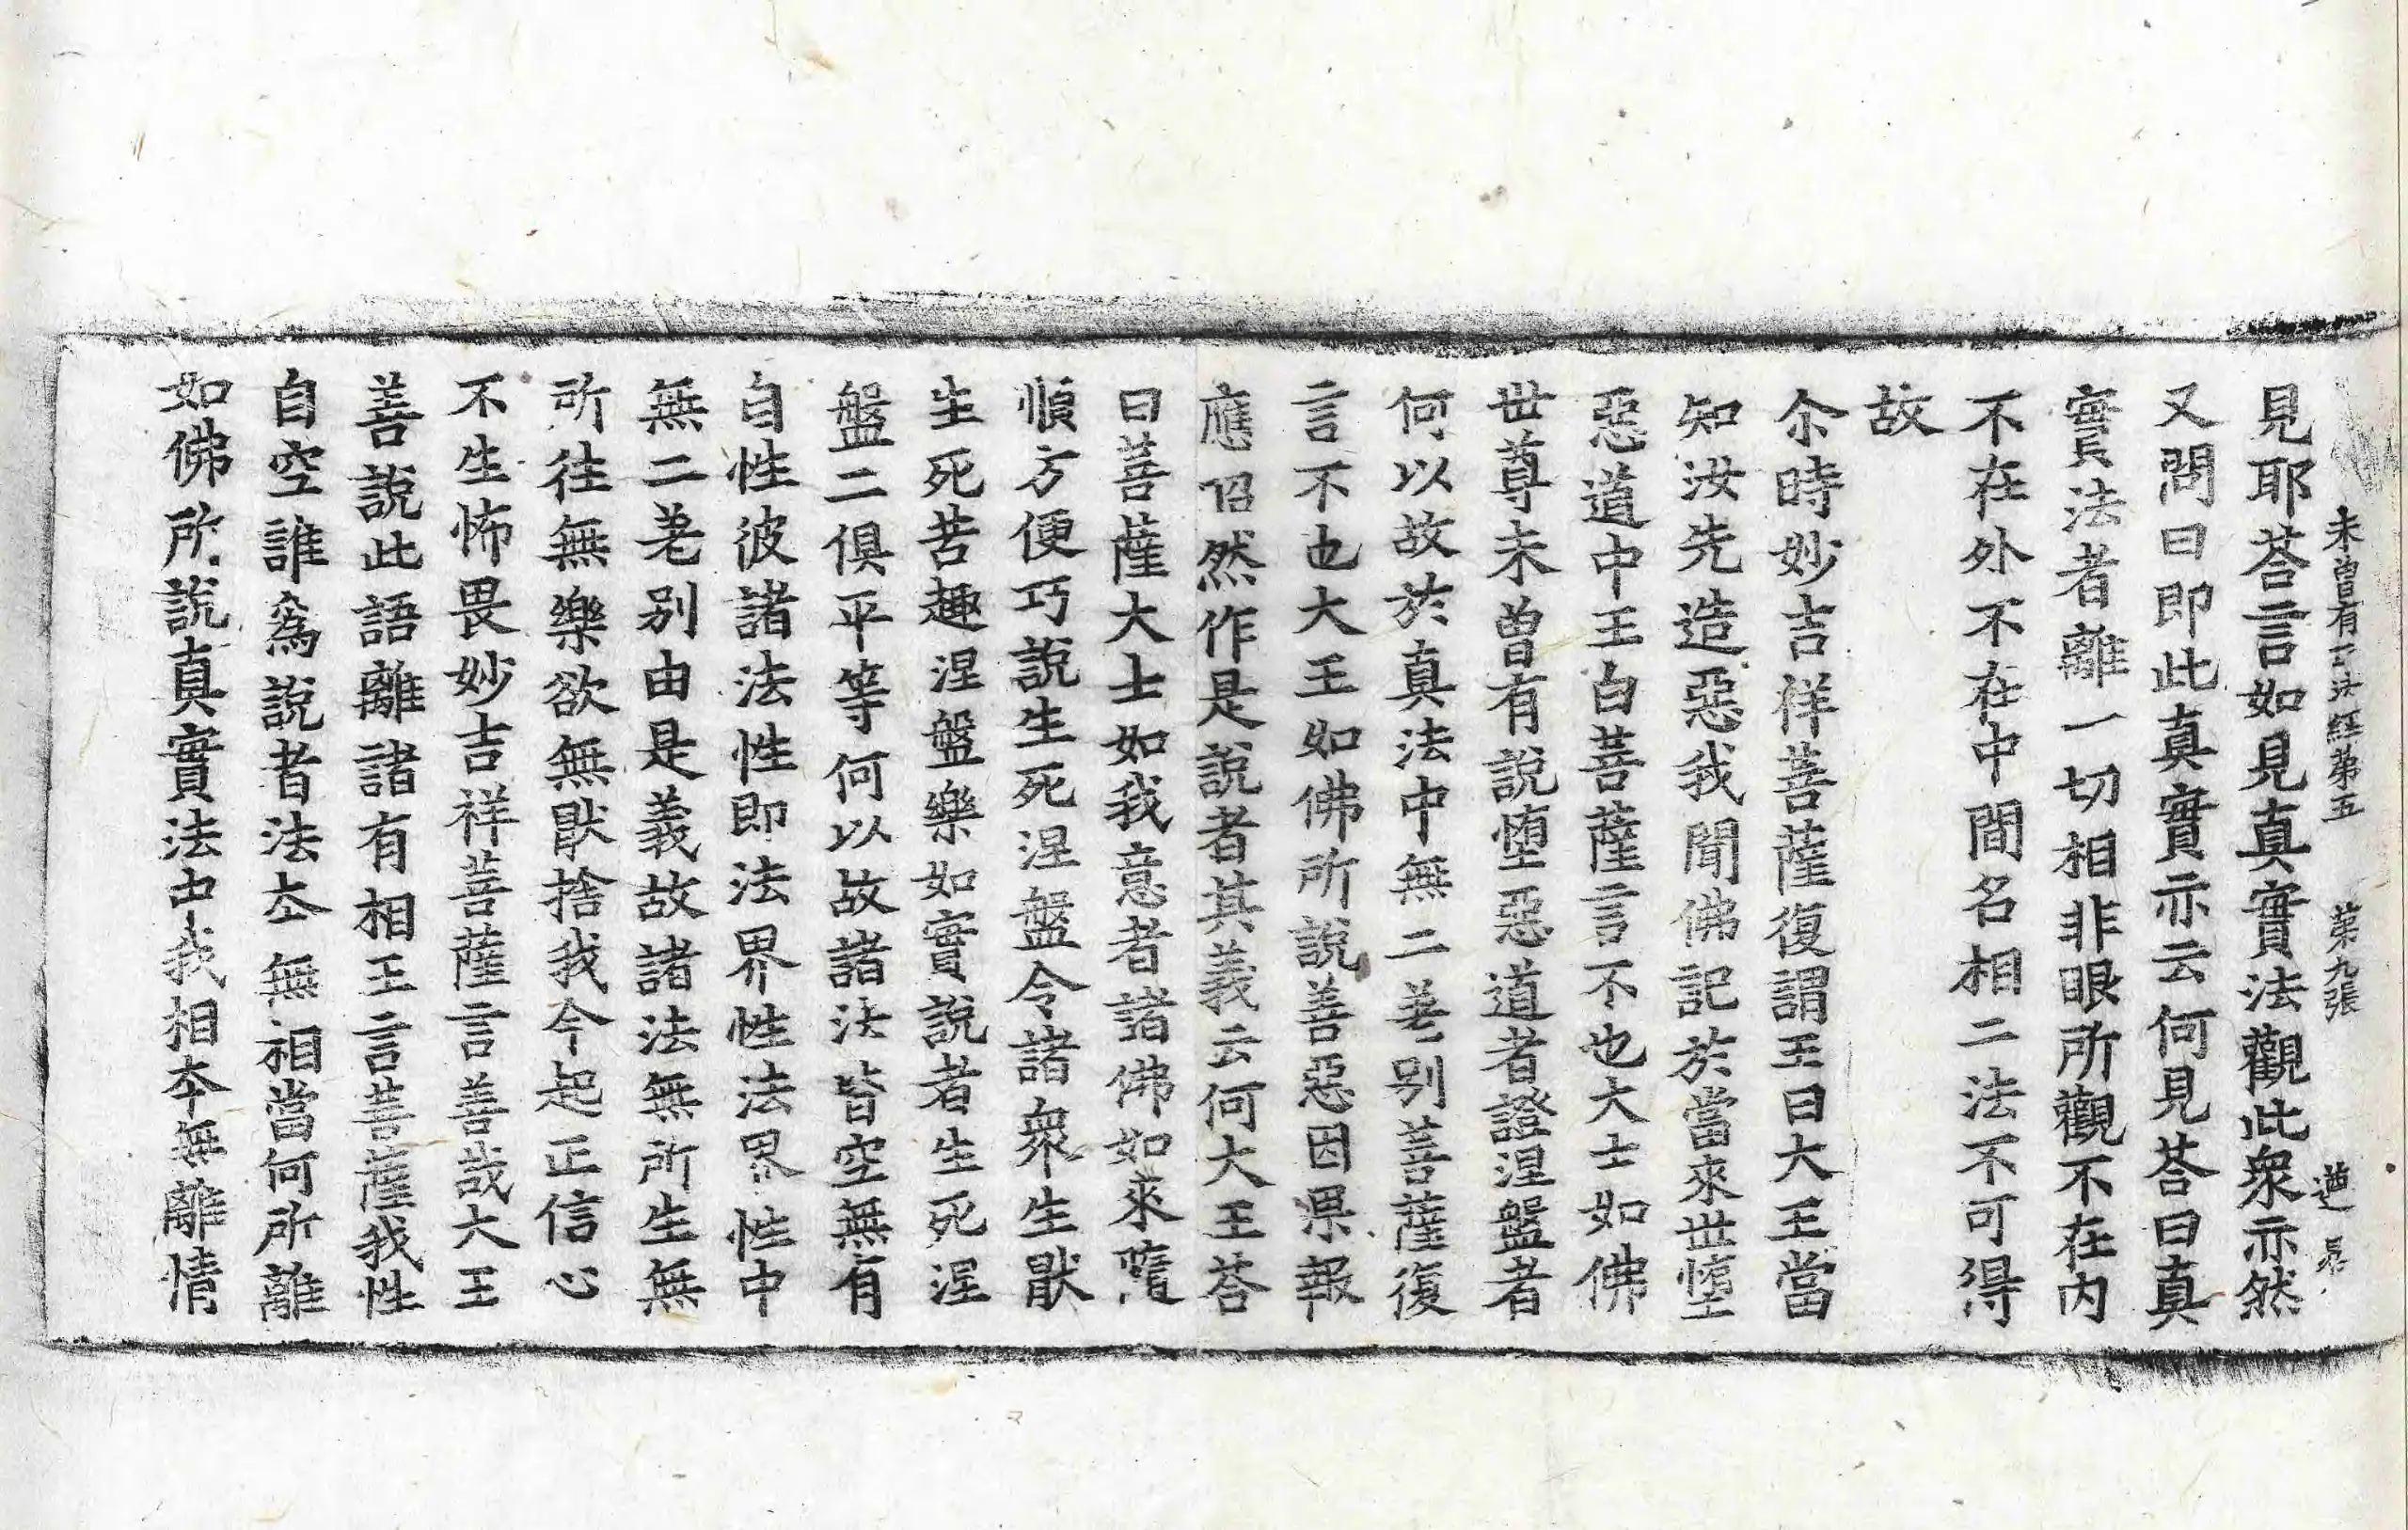 未曾有正法經第五 第九張 遐 㫤
見耶荅言如見真實法觀此衆亦然
又問曰即此真實亦云何見荅曰真
實法者離一切相非眼所觀不在内
不在外不在中間名相二法不可得
故
尒時妙吉祥菩薩復謂王曰大王當
知汝先造惡我聞佛記於當來世墮
惡道中王白菩薩言不也大士如佛
世尊未曽有說墮惡道者證涅盤者
何以故於真法中無二差别菩薩復
言不也大王如佛所說善惡因果報
應昭然作是說者其義云何大王荅
曰菩薩大士如我意者諸佛如來隨
順方便巧說生死涅盤令諸衆生猒
生死苦趣涅盤樂如實說者生死涅
盤二俱平等何以故諸法皆空無有
自性彼諸法性即法界性法界性中
無二差别由是義故諸法無所生無
所往無樂欲無猒捨我今起正信心
不生怖畏妙吉祥菩薩言善哉大王
善說此語離諸有相王言菩薩我性
自空誰爲說者法夲無相當何所離
如佛所說真實法中我相夲無離情